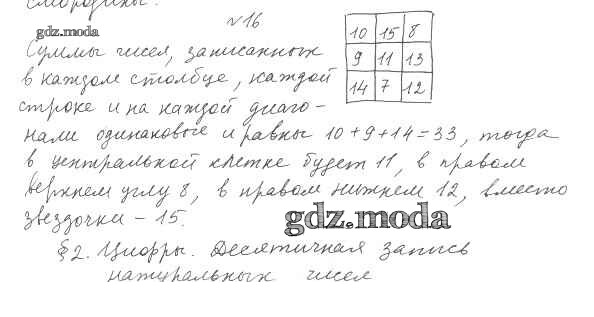 смородины.
№16
gdz.moda
10 15 8
9 11 13
14 7 12
Суммы чисел, записанных
в каждом столбце, каждой
строке и на каждой диаго-
нали одинаковые и равны 10+9+14=33, тогда
в центральной клетке будет 11, в правом
верхнем углу 8, в правом нижнем 12, вместо
звездочки - 15.
gdz.moda
§2. Цифры. Десятичная запись
натуральных чисел